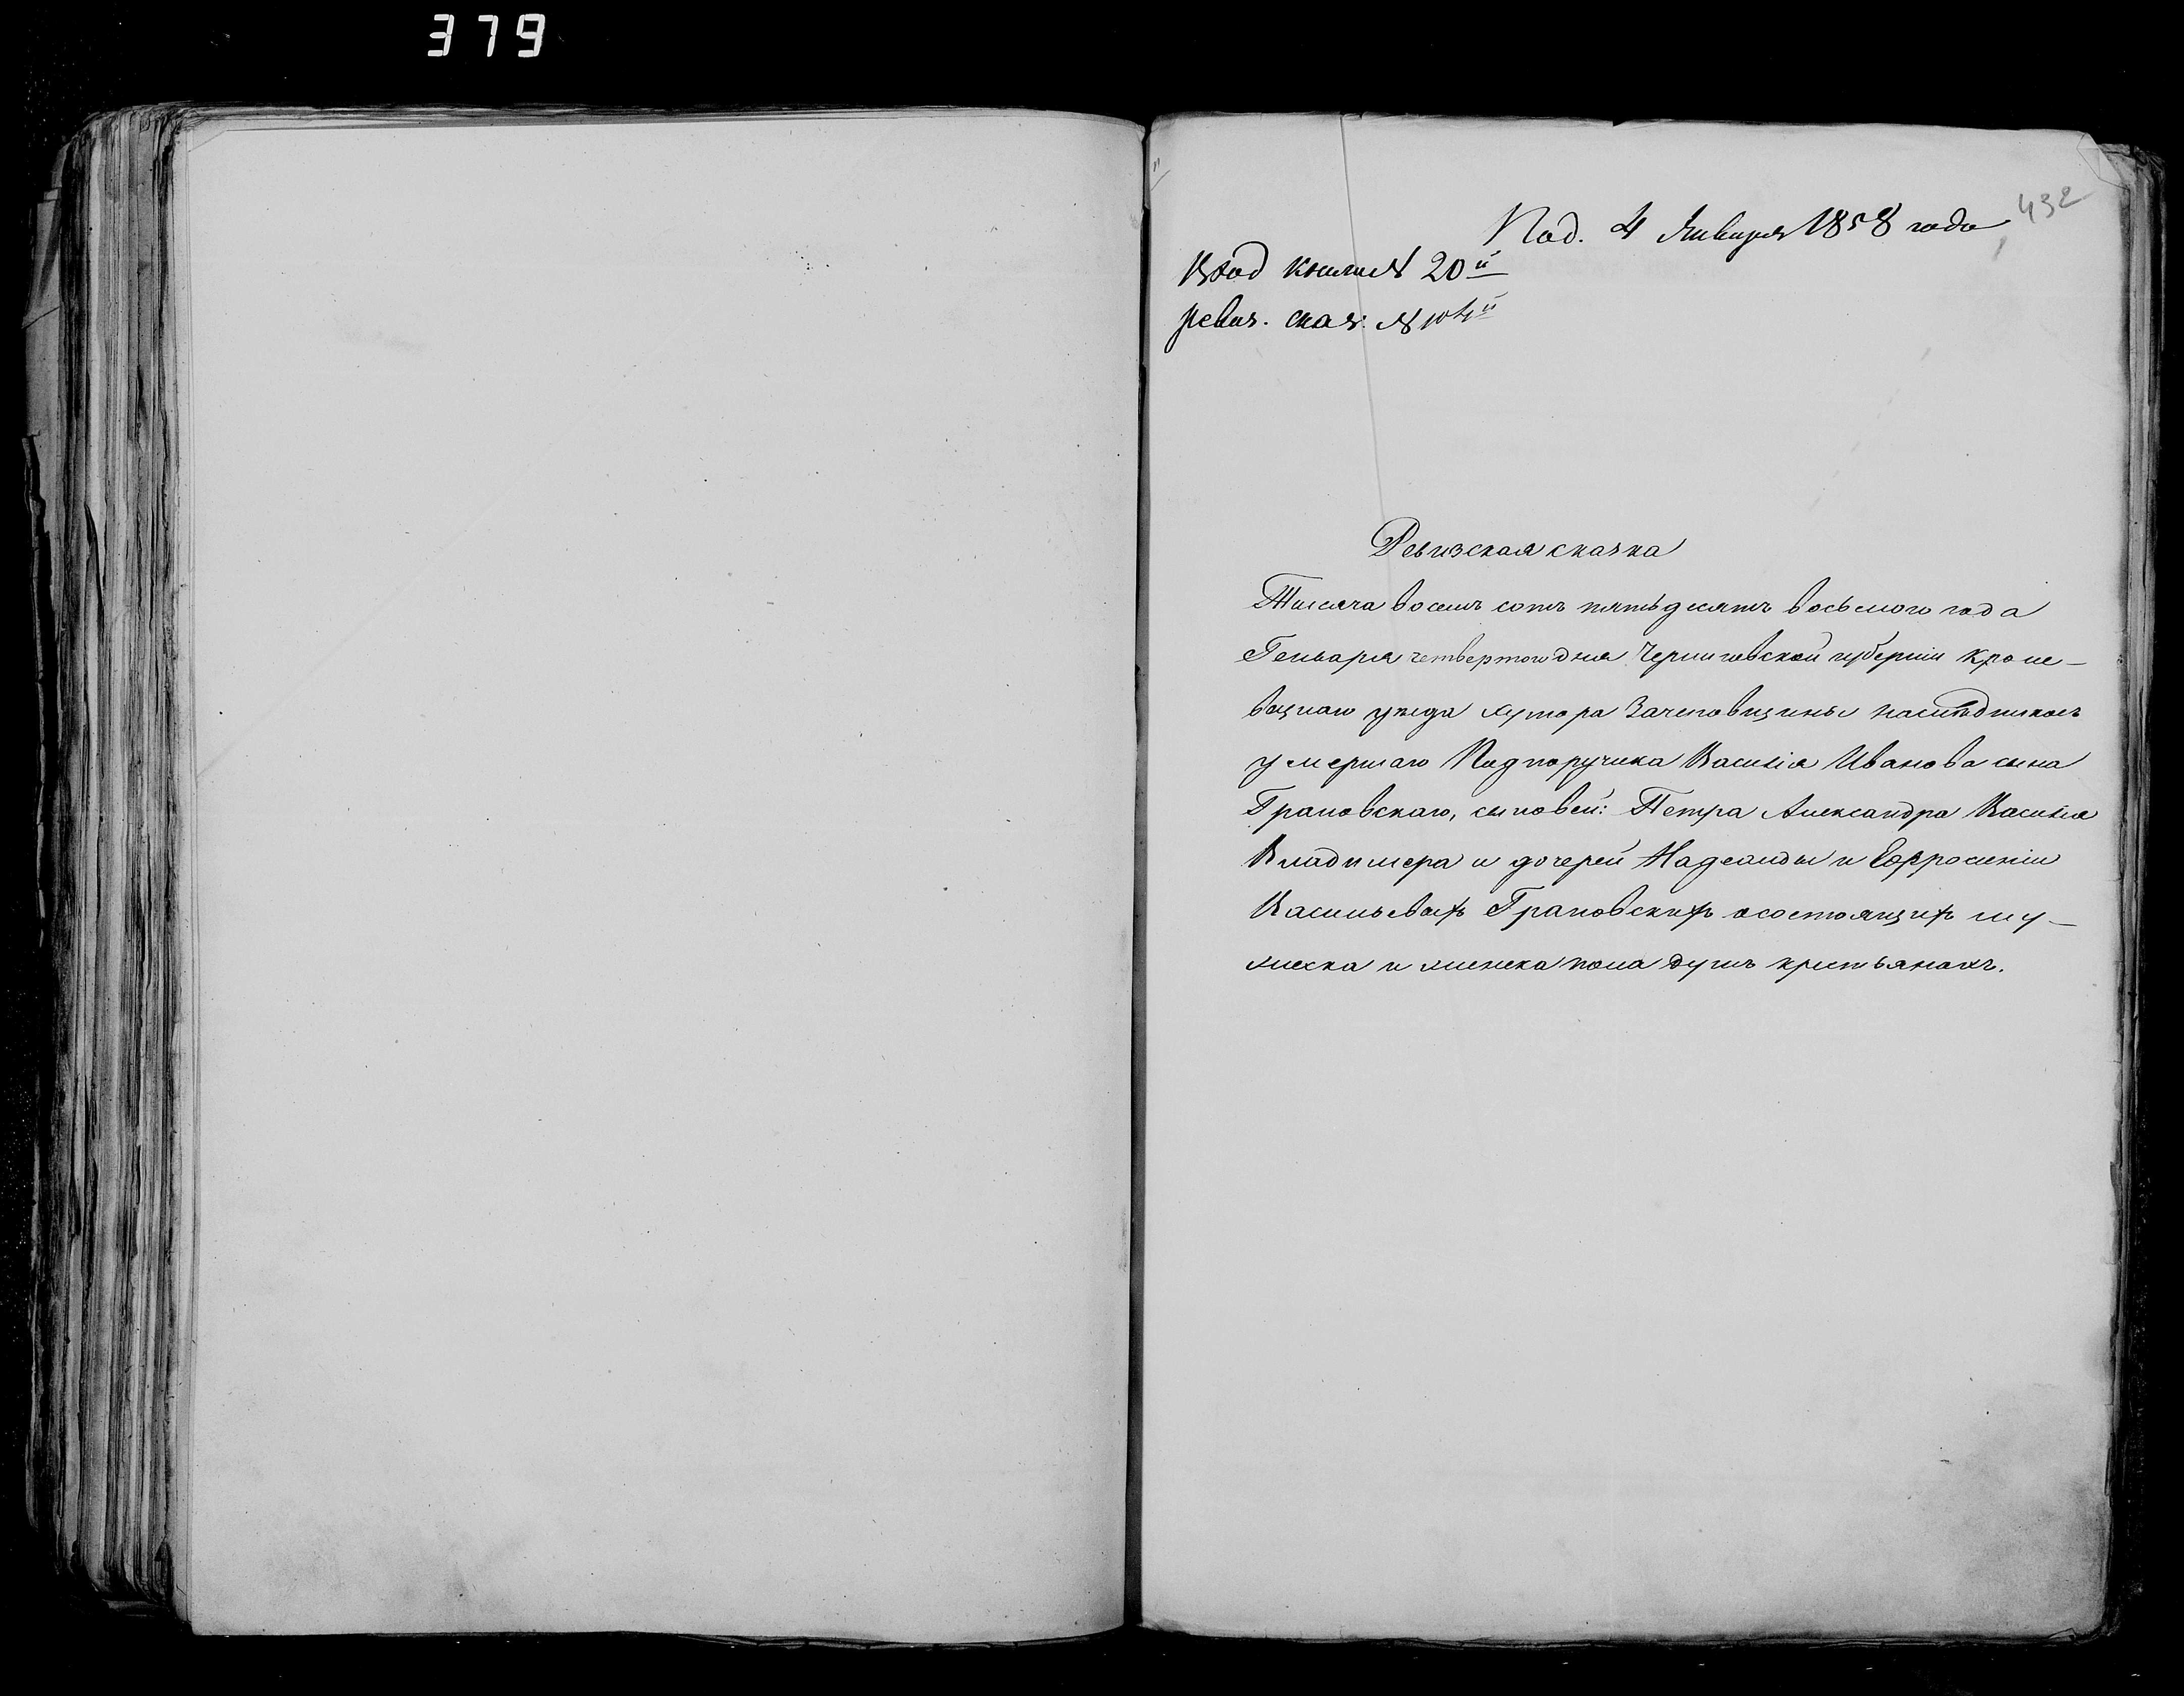 379
432
Под. 4 Января 1858 года
Вход книги № 20й
ревиз. сказ: № 104й
Ревизская сказка
Тысяча восемь сотъ пятьдесятъ восьмого года
Генваря четвертого дня Черниговской губерніи Кроле-
вецкаго уѣзда хутора наслѣдниковъ
умершаго Подпоручика Василія Иванова сына
Грановскаго, сыновей: Петра Александра Василія
Владимера и дочерей Надежды и Ефросиніи
Васильевыхъ Грановскихъ осостоящихъ му-
жеска и женска пола душъ крестьянахъ.